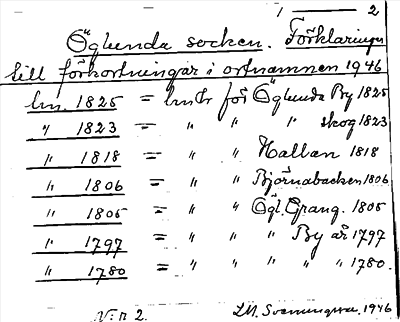 1 — 2
Öglunda socken. Förklaringar
till förkortningar i ortnamnen 1946
lm. 1825 = lm för Öglunda By 1825
" 1823 = " " " skog 1823
" 1818 = " " Hallan 1818
" 1806 = " " Björnabacken 1806
" 1805 = " " Ögl. Grang. 1805
" 1797 = " " " By år 1797
" 1780 = " " " " " 1780.
N:r 2. 1946